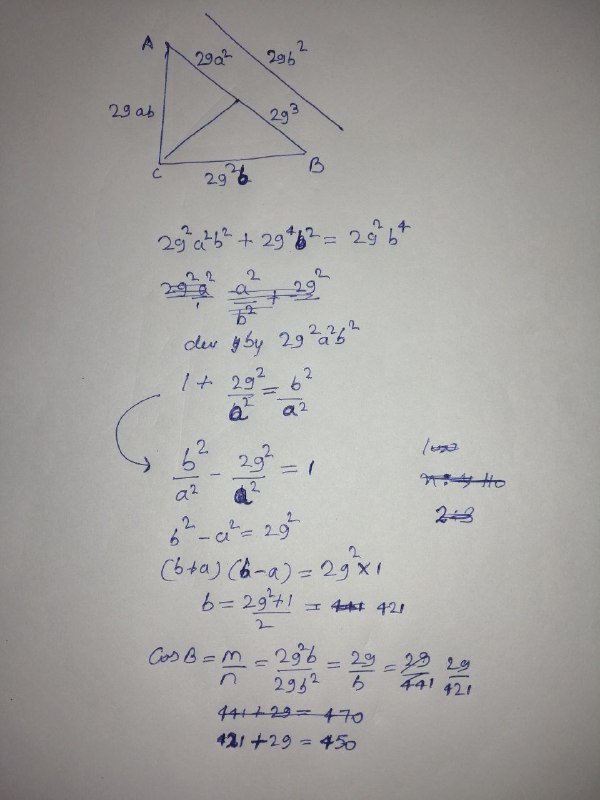 A
29a²
29b²
29ab
29³
C
29²b
B
29²a²b² + 29⁴b² = 29²b⁴
29²a² a²/b² + 29²
by 29²a²b²
1 + 29²/a² = b²/a²
b²/a² - 29²/a² = 1
b² - a² = 29²
(b+a) (b-a) = 29² × 1
b = 29²+1/2 = 441 421
Cos B = m/n = 29²b/29b² = 29/b = 29/441 29/421
441 + 29 = 470
421 + 29 = 450